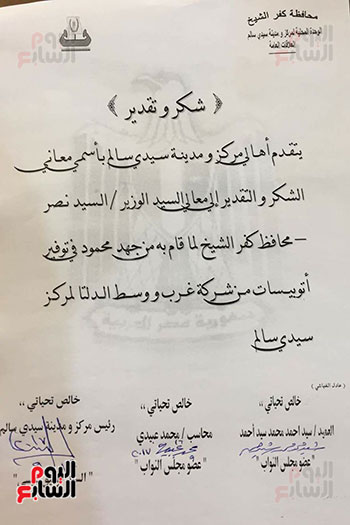 محافظة كفر الشيخ
الوحدة المحلية لمركز ومدينة سيدي سالم
العلاقات العامة
اليوم السابع
﴿ شكر وتقدير ﴾
يتقدم أهالي مركز ومدينة سيدي سالم بأسمي معاني
الشكر والتقدير إلي معالي السيد الوزير / السيد نصر
– محافظ كفر الشيخ لما قام به من جهد محمود في توفير
أتوبيسات من شركة غرب ووسط الدلتا لمركز
سيدي سالم
جمهورية مصر العربية
خالص تحياتي ،،
العميد / سيد احمد محمد سيد أحمد
" عضو مجلس النواب "
خالص تحياتي ،،
محاسب / محمد عبيدي
" عضو مجلس النواب "
خالص تحياتي ،،
رئيس مركز ومدينة سيدي سالم
اليوم السابع